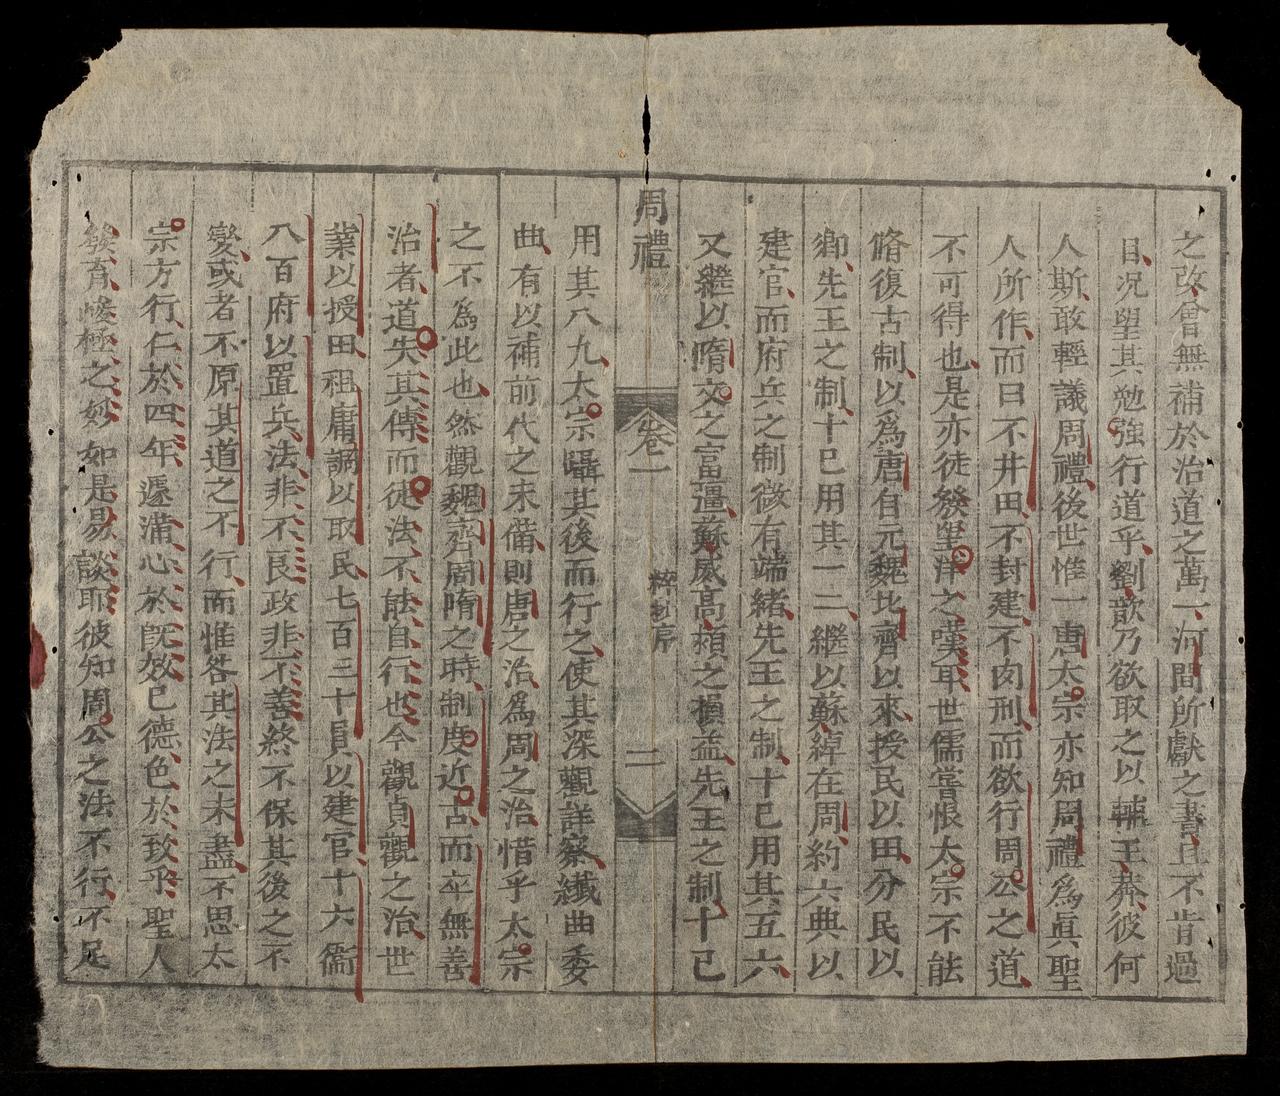 之改會無補於治道之萬一河間所獻之書且不肯過
目况望其勉強行道乎劉歆乃欲取之以輔王莽彼何
人斯敢輕議周禮後世惟一唐太宗亦知周禮爲眞聖
人所作而曰不井田不封建不肉刑而欲行周公之道
不可得也是亦徒發望洋之嘆耳世儒嘗恨太宗不能
脩復古制以爲唐自元魏北齊以來授民以田分民以
鄉先王之制十已用其一二繼以蘇綽在周約六典以
建官而府兵之制微有端緒先王之制十已用其五六
又繼以隋文之富彊蘇威高熲之損益先王之制十已
周禮
卷一
粹抄序
二
用其八九太宗囁其後而行之使其深觀詳察纎曲委
曲有以補前代之未備則唐之治爲周之治惜乎太宗
之不為此也然觀魏齊周隋之時制度近古而卒無善
治者道失其傳而徒法不能自行也今觀貞觀之治世
業以授田租庸調以取民七百三十員以建官十六衛
八百府以置兵法非不良政非不善終不保其後之不
變或者不原其道之不行而惟咎其法之未盡不思太
宗方行仁於四年遽滿心於旣效已德色於致乎聖人
發育峻極之妙如是易談耶彼知周公之法不行不足